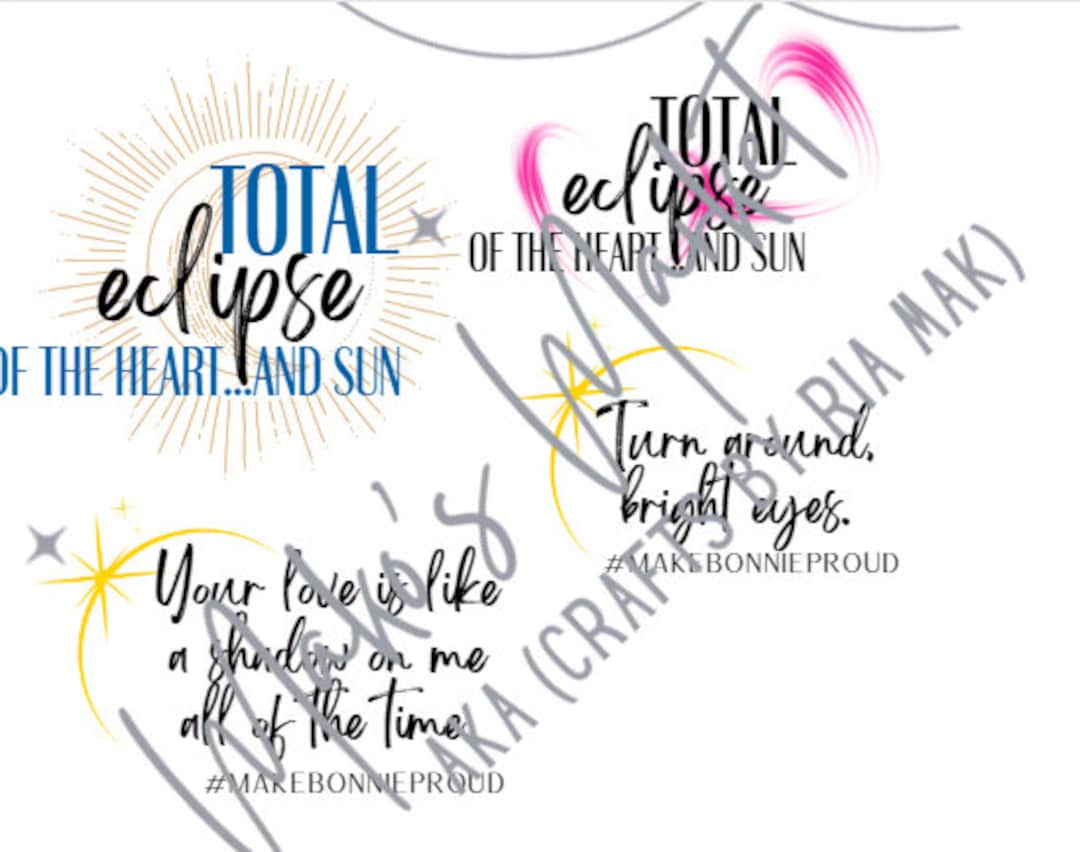 TOTAL
eclipse
OF THE HEART...AND SUN
TOTAL
eclipse
OF THE HEART...AND SUN
Turn around,
bright eyes.
#MAKEBONNIEPROUD
Your love is like
a shadow on me
all of the time
#MAKEBONNIEPROUD
Mako's Market
AKA (CRAFTS BY RIA MAK)